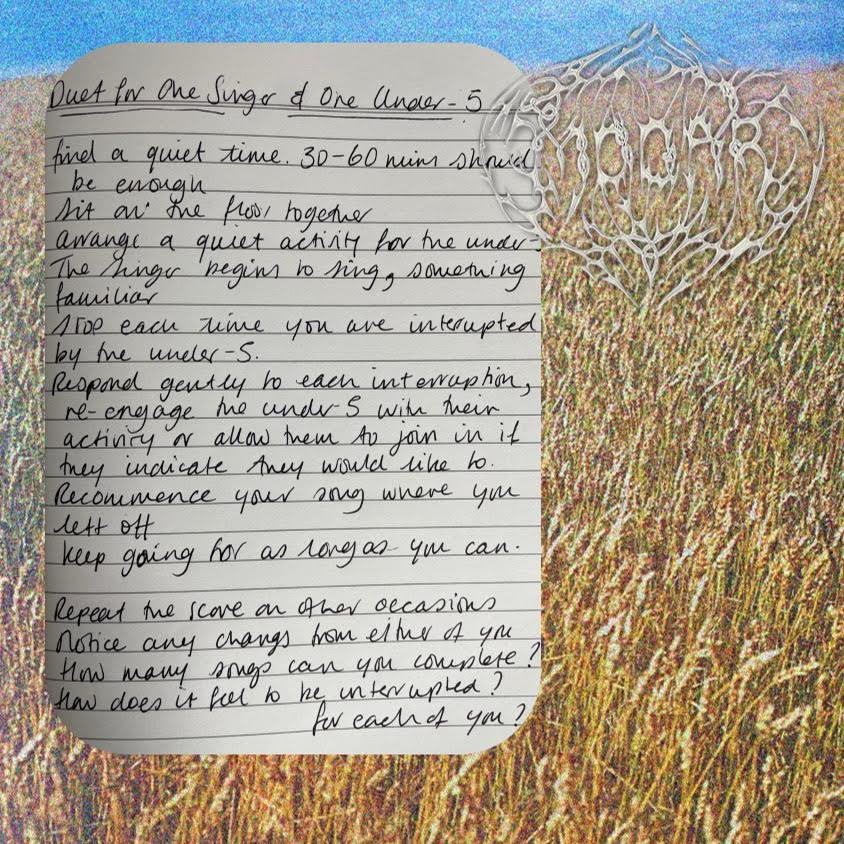 Duet for One Singer & One Under-5
find a quiet time. 30-60 mins should
be enough
sit on the floor together
arrange a quiet activity for the under-
The singer begins to sing, something
familiar
stop each time you are interrupted
by the under-5.
Respond gently to each interruption,
re-engage the under-5 with their
activity or allow them to join in if
they indicate they would like to.
Recommence your song where you
left off
keep going for as long as you can.
Repeat the score on other occasions
Notice any changs from either of you
How many songs can you complete?
How does it feel to be interrupted?
for each of you?